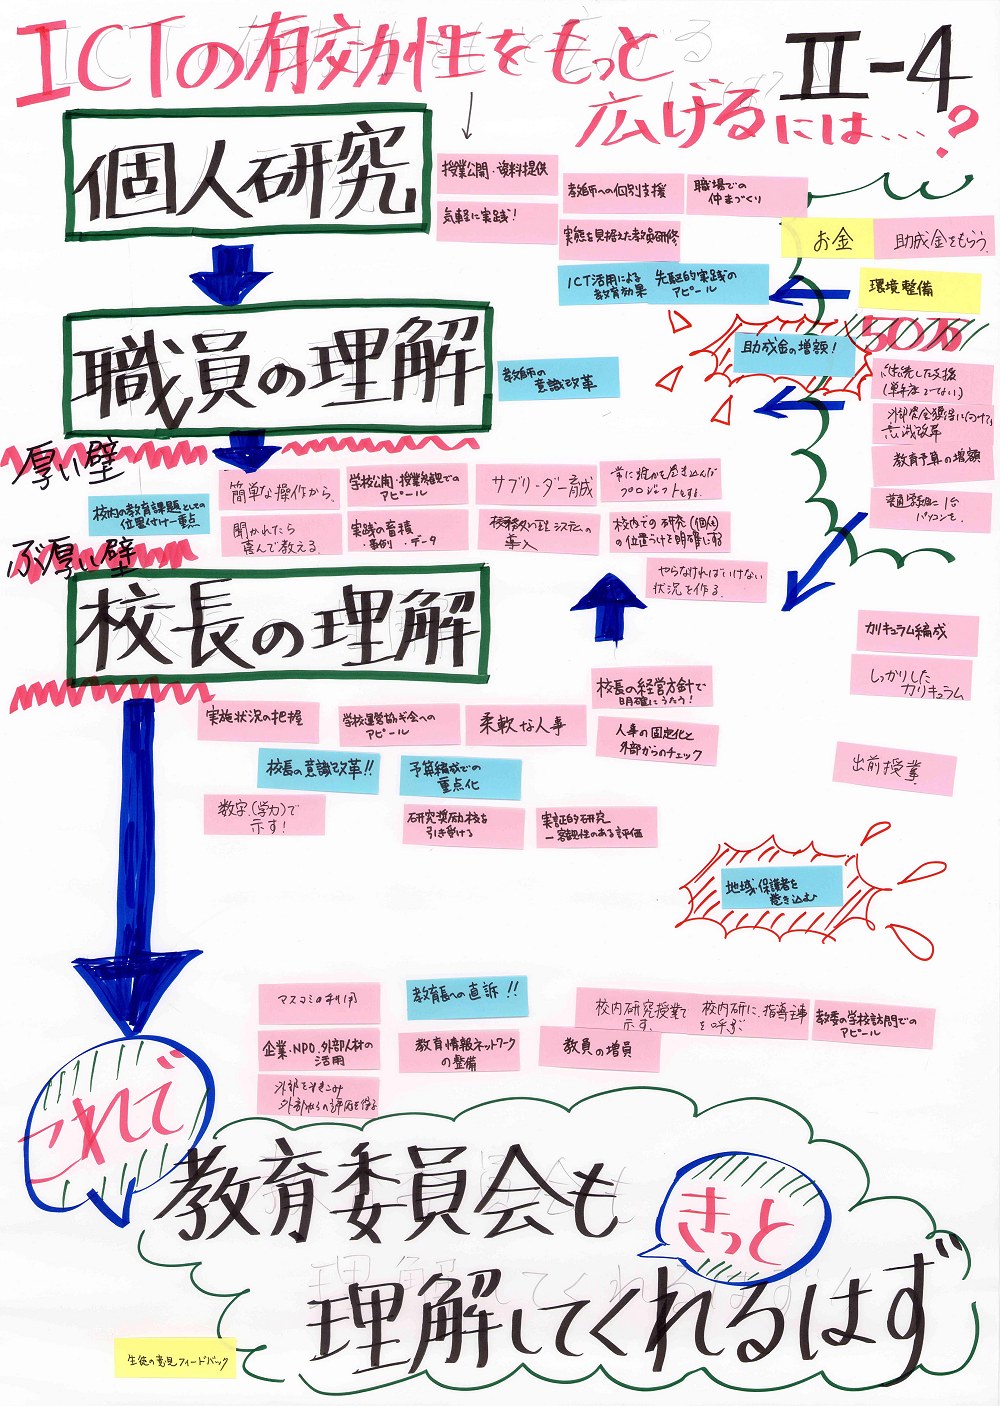 ICTの有効性をもっと
広げるには…?
Ⅱ-4
個人研究
授業公開・資料提供
気軽に実践!
教師への個別支援
職場での
仲まづくり
実態を見据えた教員研修
ICT活用による
教育効果
先駆的実践の
アピール
お金
助成金をもらう
環境整備
50万
助成金の増額!
職員の理解
教師の
意識改革
継続した支援
(単年度でない)
外部資金獲得に向けて
意識改革
教育予算の増額
普通教室に1台
パソコンを
厚い壁
校内の教育課題としての
位置付け-重点
簡単な操作から
聞かれたら
喜んで教える
学校公開・授業参観での
アピール
実践の蓄積
・事例 ・データ
サブリーダー育成
校務処理システムの
導入
常に誰かを巻き込んだ
プロジェクトをする
校内での研究(個人)
の位置づけを明確にする
やらなければいけない
状況を作る
ぶ厚い壁
校長の理解
カリキュラム編成
しっかりした
カリキュラム
出前授業
実施状況の把握
学校運営協ギ会への
アピール
柔軟な人事
校長の経営方針で
明確にうたう!
人事の固定化と
外部からのチェック
校長の意識改革!!
予算編成での
重点化
数字(学力)で
示す!
研究奨励校を
引き受ける
実証的研究
-客観性のある評価
地域・保護者を
巻き込む
マスコミの利用
教育長への直訴!!
校内研究授業で
示す
校内研に、指導主事
を呼ぶ
教委の学校訪問での
アピール
企業・NPO、外部人材の
活用
教育情報ネットワーク
の整備
教員の増員
外部をまきこみ
外部からの評価を得る
これで
教育委員会も
きっと
理解してくれるはず
生徒の意見フィードバック